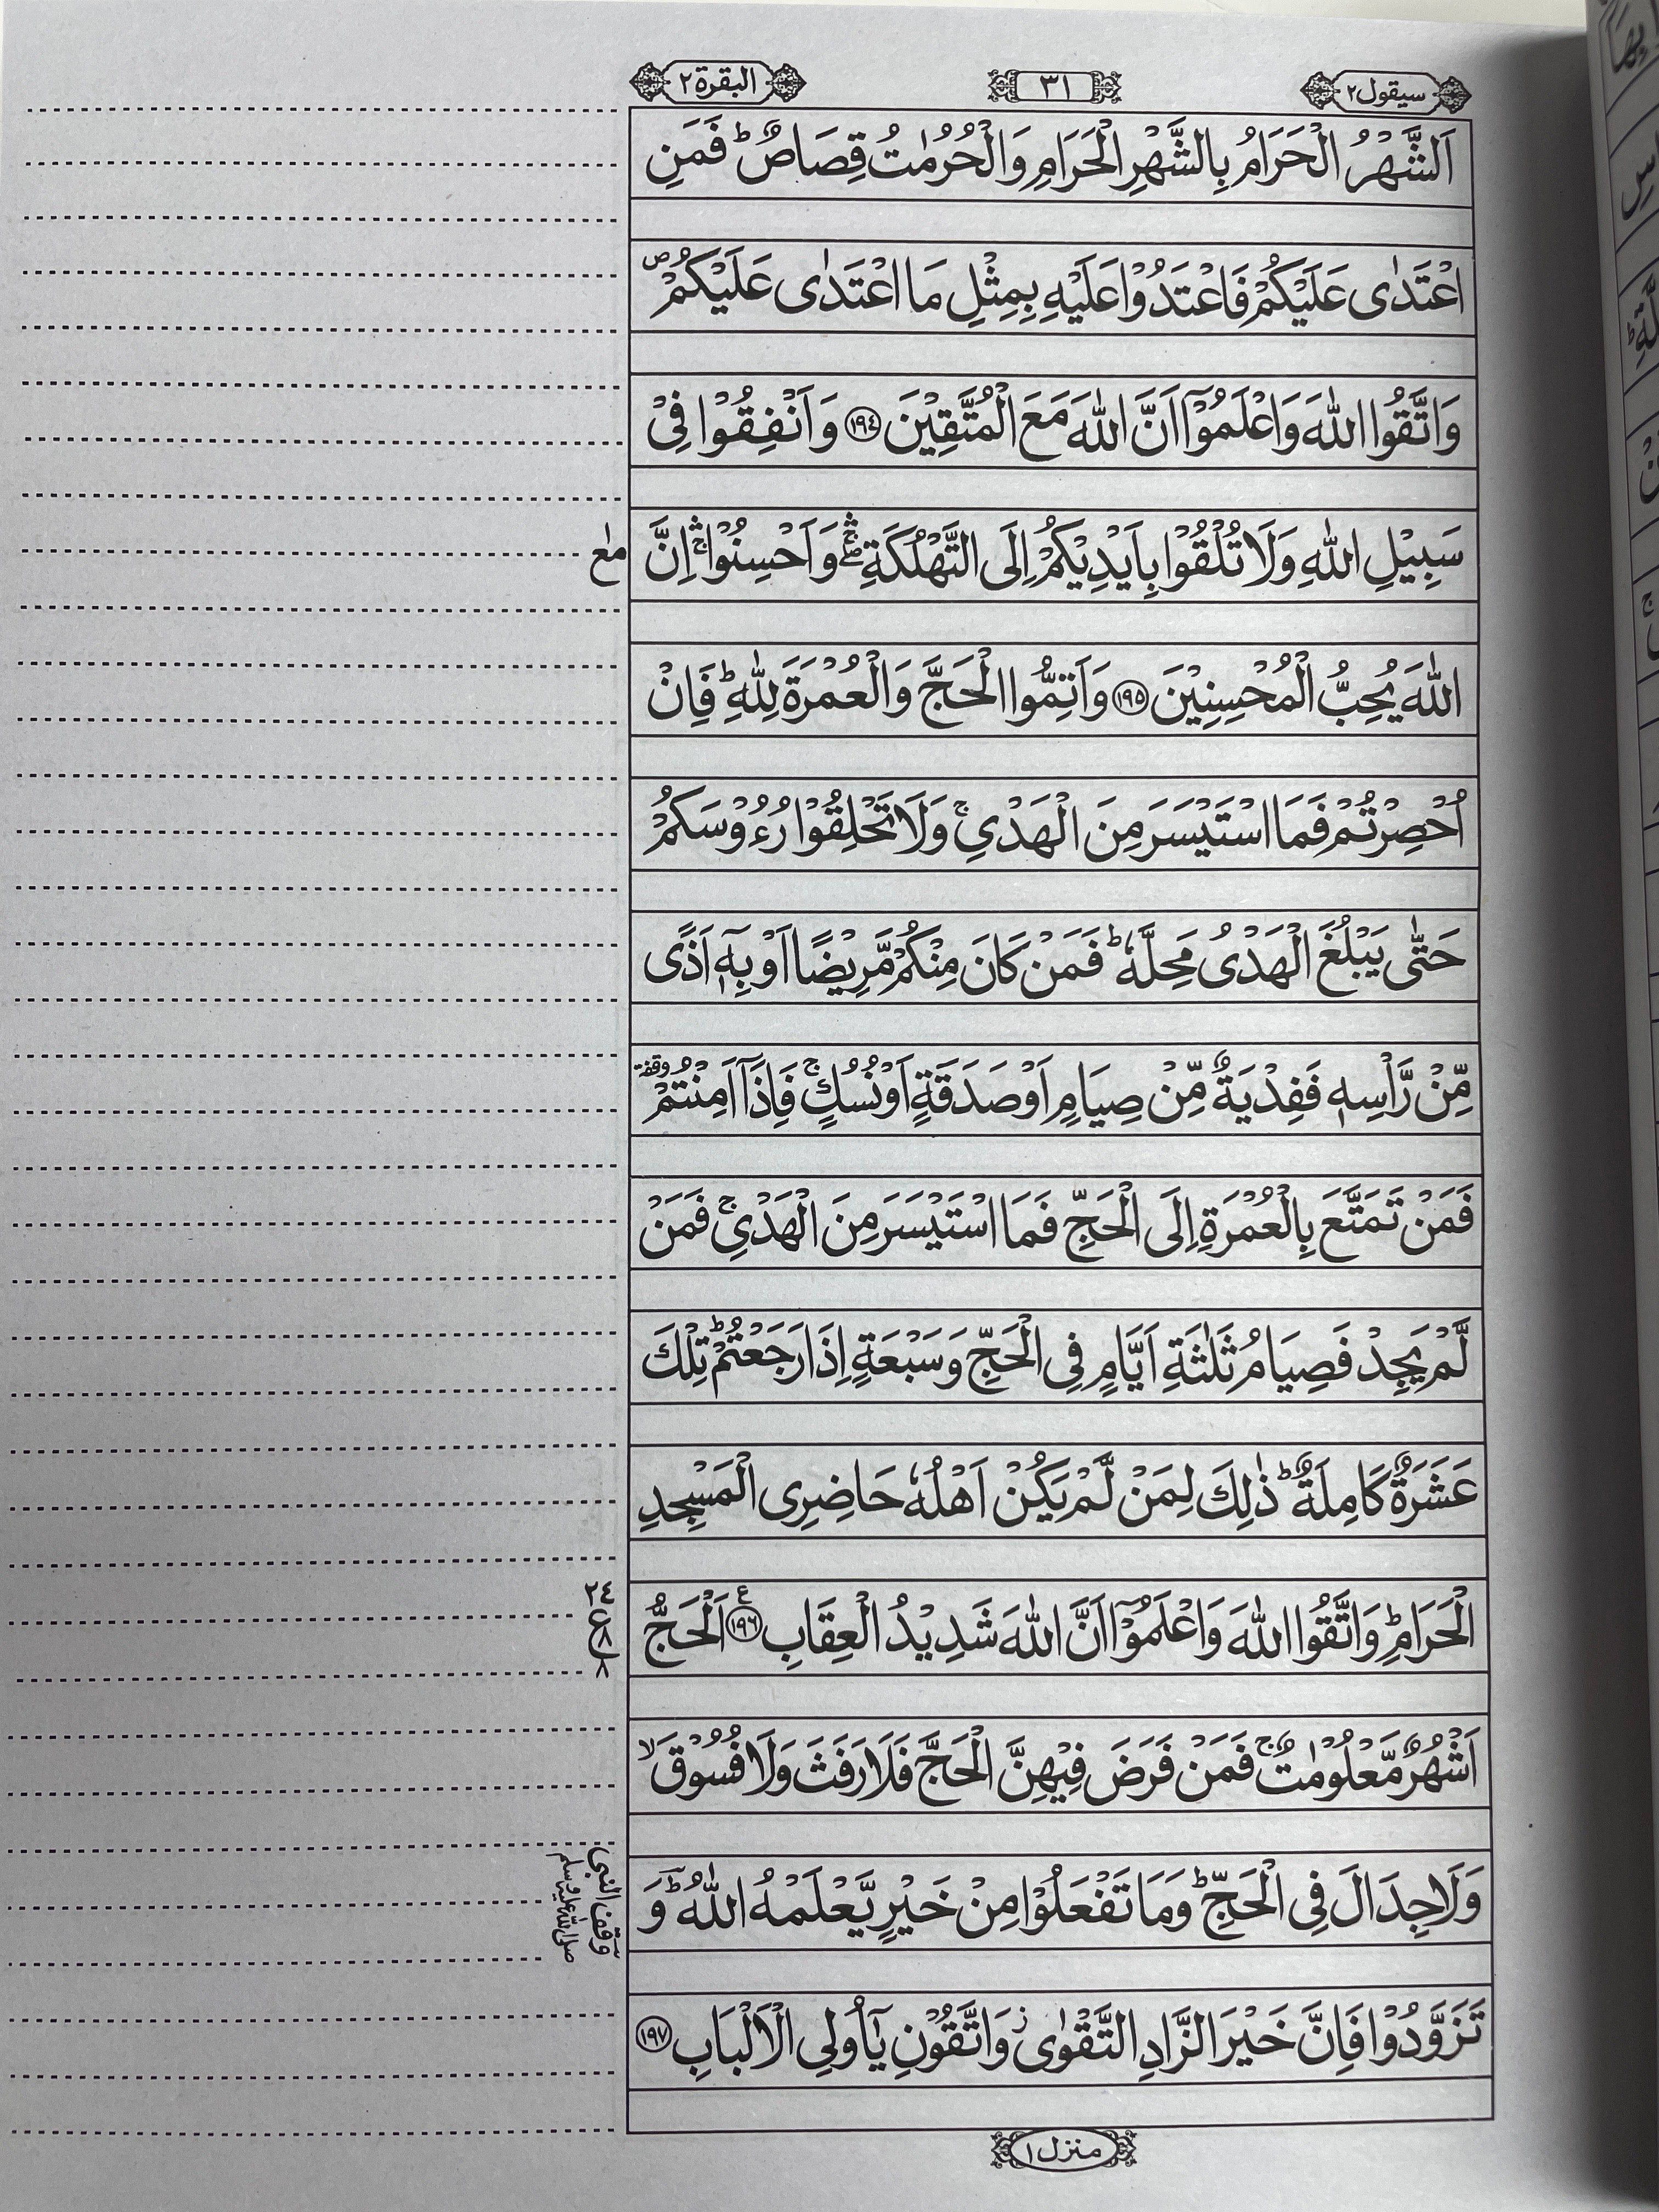 سيقول ٢
٣١
البقرة ٢
اَلشَّهْرُ الْحَرَامُ بِالشَّهْرِ الْحَرَامِ وَالْحُرُمٰتُ قِصَاصٌ ؕ فَمَنِ
اعْتَدٰى عَلَيْكُمْ فَاعْتَدُوْا عَلَيْهِ بِمِثْلِ مَا اعْتَدٰى عَلَيْكُمْ ۪
وَاتَّقُوا اللّٰهَ وَاعْلَمُوْۤا اَنَّ اللّٰهَ مَعَ الْمُتَّقِيْنَ ﴿١٩٤﴾ وَاَنْفِقُوْا فِيْ
سَبِيْلِ اللّٰهِ وَلَا تُلْقُوْا بِاَيْدِيْكُمْ اِلَى التَّهْلُكَةِ ۛۖۚ وَاَحْسِنُوْا ۛۚ اِنَّ
مع
اللّٰهَ يُحِبُّ الْمُحْسِنِيْنَ ﴿١٩٥﴾ وَاَتِمُّوا الْحَجَّ وَالْعُمْرَةَ لِلّٰهِ ؕ فَاِنْ
اُحْصِرْتُمْ فَمَا اسْتَيْسَرَ مِنَ الْهَدْيِ ۚ وَلَا تَحْلِقُوْا رُءُوْسَكُمْ
حَتّٰى يَبْلُغَ الْهَدْيُ مَحِلَّهٗ ؕ فَمَنْ كَانَ مِنْكُمْ مَّرِيْضًا اَوْ بِهٖۤ اَذًى
مِّنْ رَّاْسِهٖ فَفِدْيَةٌ مِّنْ صِيَامٍ اَوْ صَدَقَةٍ اَوْ نُسُكٍ ۚ فَاِذَاۤ اَمِنْتُمْ وقفة
فَمَنْ تَمَتَّعَ بِالْعُمْرَةِ اِلَى الْحَجِّ فَمَا اسْتَيْسَرَ مِنَ الْهَدْيِ ۚ فَمَنْ
لَّمْ يَجِدْ فَصِيَامُ ثَلٰثَةِ اَيَّامٍ فِى الْحَجِّ وَسَبْعَةٍ اِذَا رَجَعْتُمْ ؕ تِلْكَ
عَشَرَةٌ كَامِلَةٌ ؕ ذٰلِكَ لِمَنْ لَّمْ يَكُنْ اَهْلُهٗ حَاضِرِى الْمَسْجِدِ
الْحَرَامِ ؕ وَاتَّقُوا اللّٰهَ وَاعْلَمُوْۤا اَنَّ اللّٰهَ شَدِيْدُ الْعِقَابِ ﴿١٩٦﴾ ع اَلْحَجُّ
٢٤
ع ٨
٨
اَشْهُرٌ مَّعْلُوْمٰتٌ ۚ فَمَنْ فَرَضَ فِيْهِنَّ الْحَجَّ فَلَا رَفَثَ وَلَا فُسُوْقَ ۙ
وَلَا جِدَالَ فِى الْحَجِّ ؕ وَمَا تَفْعَلُوْا مِنْ خَيْرٍ يَّعْلَمْهُ اللّٰهُ ؕ وَ
وقف النبى صلى الله عليه وسلم
تَزَوَّدُوْا فَاِنَّ خَيْرَ الزَّادِ التَّقْوٰى ؗ وَاتَّقُوْنِ يٰۤاُولِى الْاَلْبَابِ ﴿١٩٧﴾
منزل ١